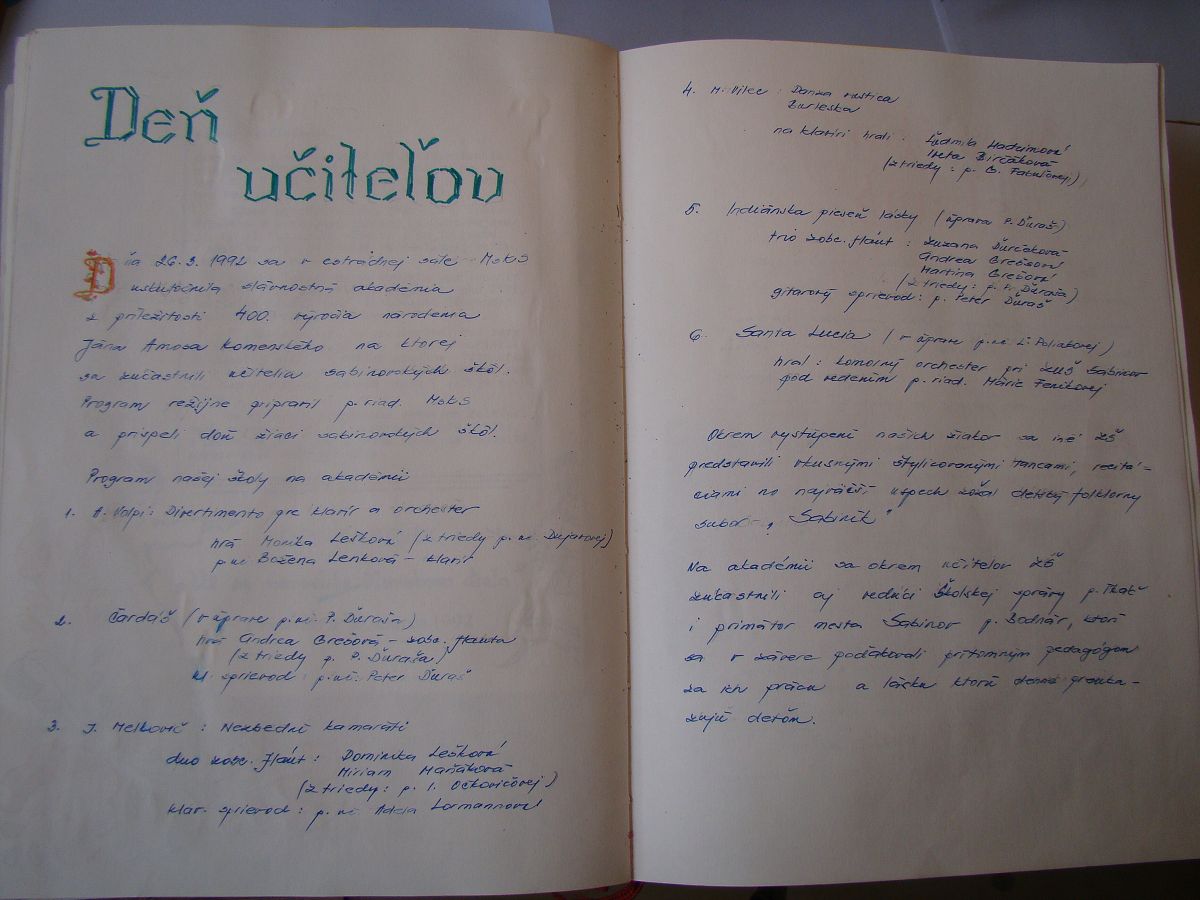 Deň
učiteľov
Dňa 26.3. 1992 sa v estrádnej sále MsKS
uskutočnila slávnostná akadémia
z príležitosti 400. výročia narodenia
Jána Amosa Komenského na ktorej
sa zúčastnili učitelia sabinovských škôl.
Program režijne pripravil p. riad. MsKS
a prispeli doň žiaci sabinovských škôl.
Program našej školy na akadémii
1. A. Volpi: Divertimento pre klavír a orchester
hrá Monika Lešková (z triedy p. uč. )
p. uč. Božena Lenková - klavír
2. Čardáš (v úprave p. uč. P. Ďuraša)
hrá Andrea Grešová - zobc. flauta
(z triedy p. P. Ďuraša)
kl. sprievod : p. uč. Peter Ďuraš
3. J. Melkovič : Nezbední kamaráti
duo zobc. fláut : Dominika Lešková
Miriam Maňáková
(z triedy : p. I. Očkovičovej)
klav. sprievod : p. uč. Adela
4. M. Vilec : Danza rustica
Burleska
na klavíri hrali : Ľudmila
Iveta Birčáková
(z triedy : p. G. )
5. Indiánska pieseň lásky (úprava P. Ďuraš)
trio zobc. fláut : Zuzana Ďurčáková
Andrea Grešová
Martina Grešová
(z triedy : p. P. Ďuraša)
gitarový sprievod : p. Peter Ďuraš
6. Santa Lucia (v úprave p. uč. Ľ. Poliakovej)
hral : komorný orchester pri ZUŠ Sabinov
pod vedením p. riad. Márie Fenikovej
Okrem vystúpení našich žiakov sa iné ZŠ
predstavili vkusnými štylizovanými tancami, recitá-
ciami no najväčší úspech zožal detský folklórny
súbor „Sabiník"
Na akadémii sa okrem učiteľov ZŠ
zúčastnili aj vedúci Školskej správy p. Tkáč
i primátor mesta Sabinov p. Bodnár, ktorí
sa v závere poďakovali prítomným pedagógom
za ich prácu a lásku ktorú denne preuka-
zujú deťom.